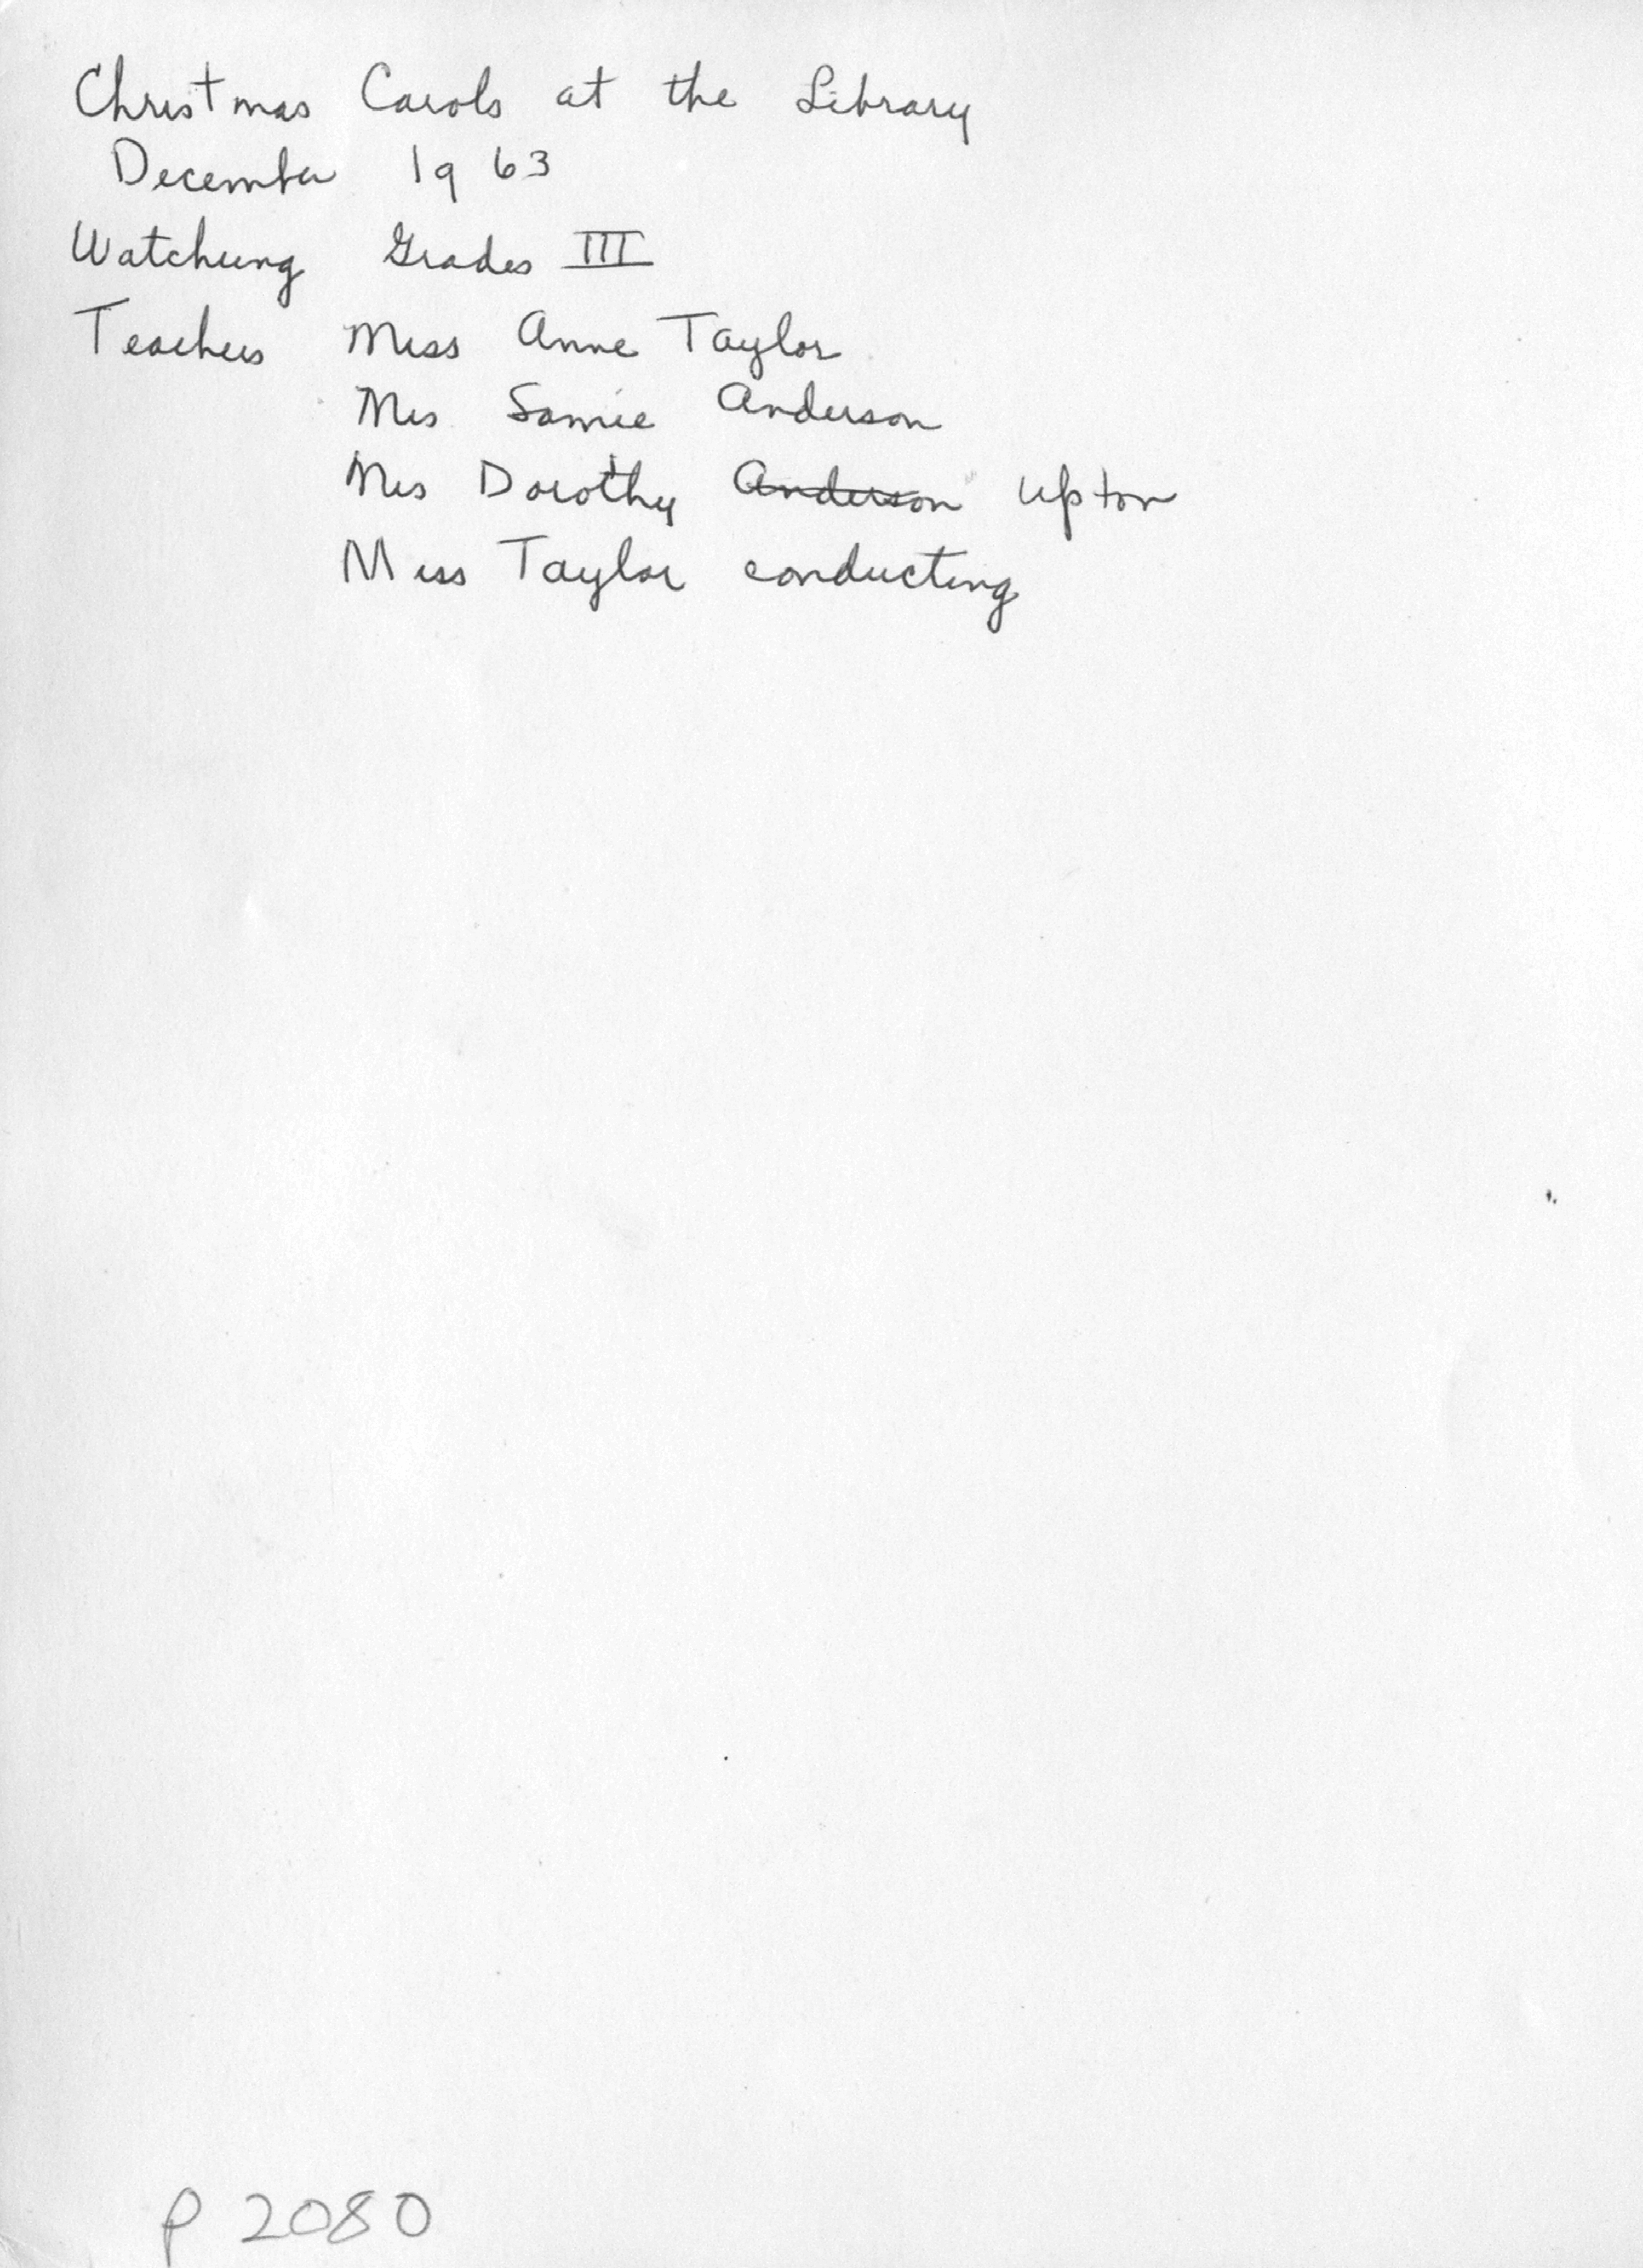 Christmas Carols at the Library
December 1963
Watchung Grades III
Teachers Miss Anne Taylor
Mrs Samie Anderson
Mrs Dorothy Anderson Upton
Miss Taylor conducting
P 2080